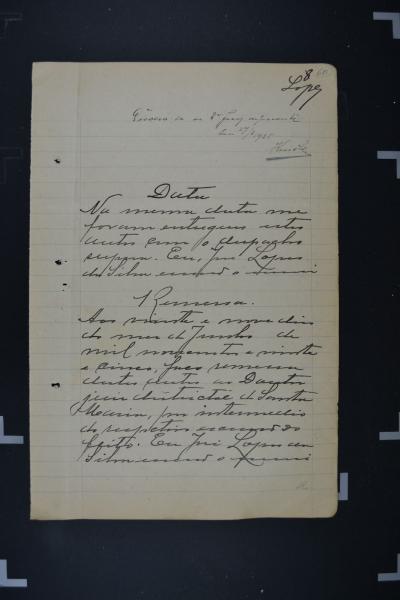 8
Lopes
Data
Na mesma data me
foram entregues estes
autos com o despacho
supra. Eu, José Lopes
da Silva escrivão o
Remessa.
Aos vinte e nove dias
do mez de Junho de
mil novecentos e vinte
e cinco, faço remessa
destes autos ao Doutor
juiz districtal de Santa
Maria, por intermedio
do respectivo escrivão do
feito. Eu José Lopes da
Silva escrivão o